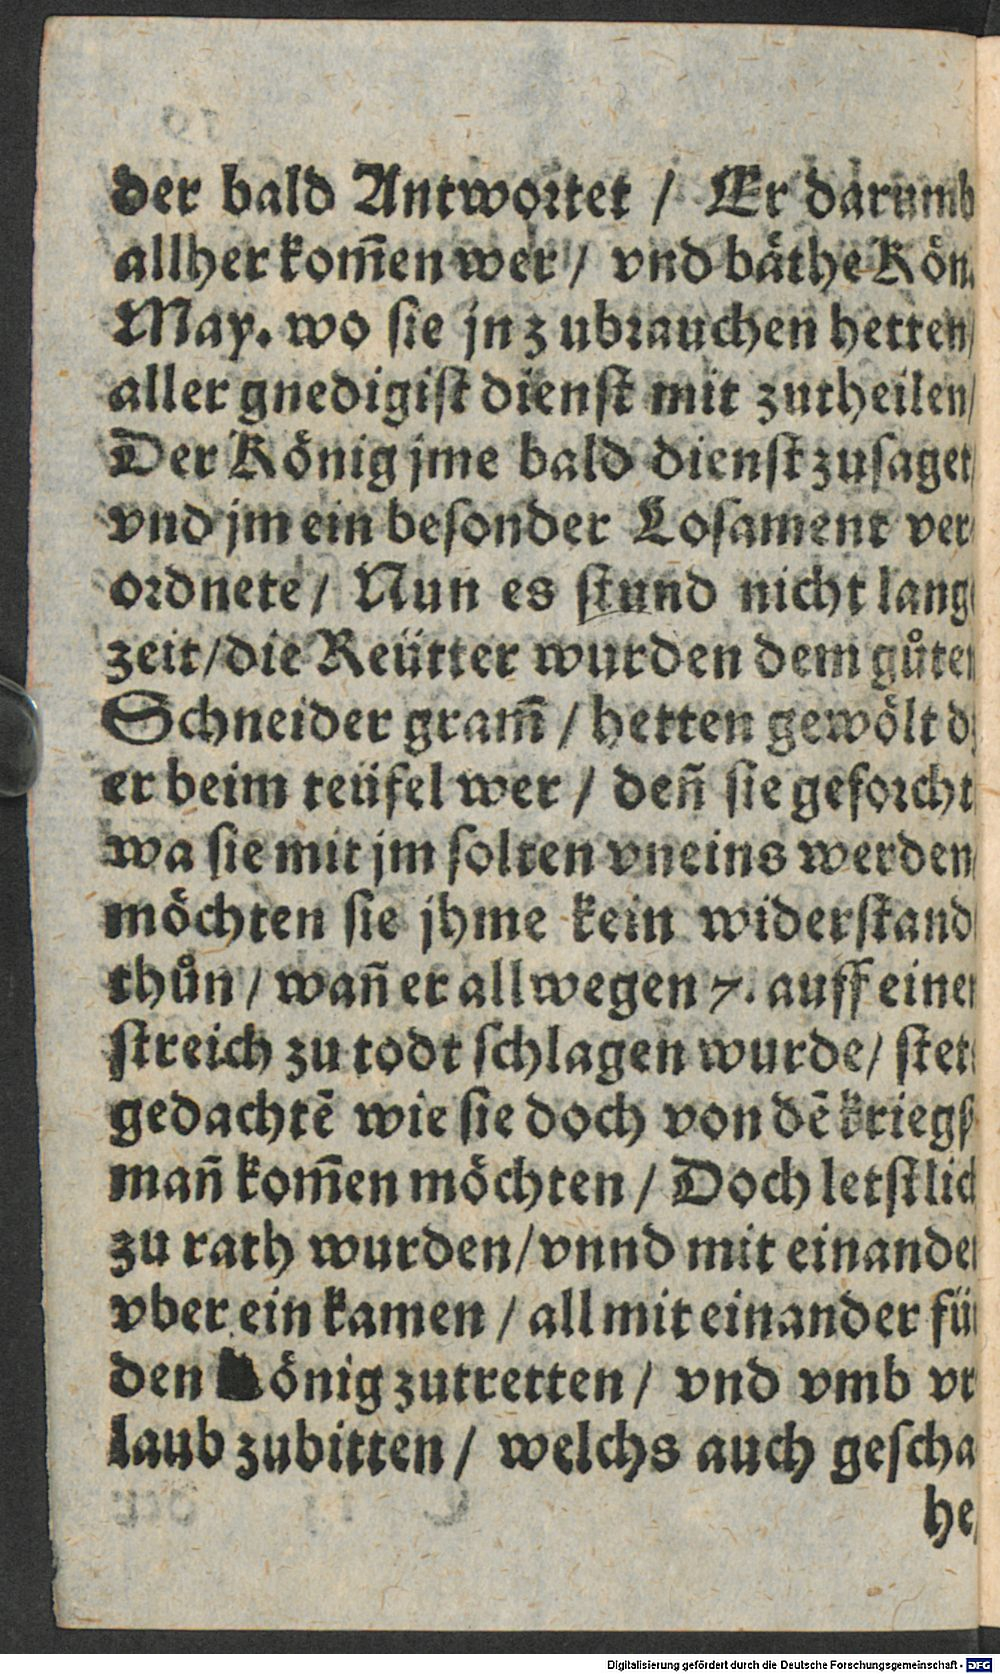 der bald Antwortet / Er darumb
allher kom̃en wer / vnd bäthe Kön.
May. wo sie jn zubrauchen hetten/
aller gnedigist dienst mit zutheilen/
Der König jme bald dienst zusaget
vnd jm ein besonder Losament ver
ordnete / Nun es stund nicht lang
zeit/die Reütter wurden dem gůten
Schneider gram̃ / hetten gewölt d
er beim teüfel wer / deñ sie geforcht
wa sie mit jm solten vneins werden
möchten sie jhme kein widerstand
thůn / wañ er allwegen 7. auff einen
streich zu todt schlagen wurde/ stet
gedachtē wie sie doch von dē kriegß
mañ kom̃en möchten / Doch letstlich
zu rath wurden/vnnd mit einander
vber ein kamen / all mit einander für
den König zutretten / vnd vmb vr
laub zubitten / welchs auch gescha
he/
Digitalisierung gefördert durch die Deutsche Forschungsgemeinschaft - DFG